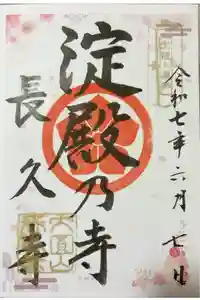 令和七年六月七日
淀殿乃寺
長久寺